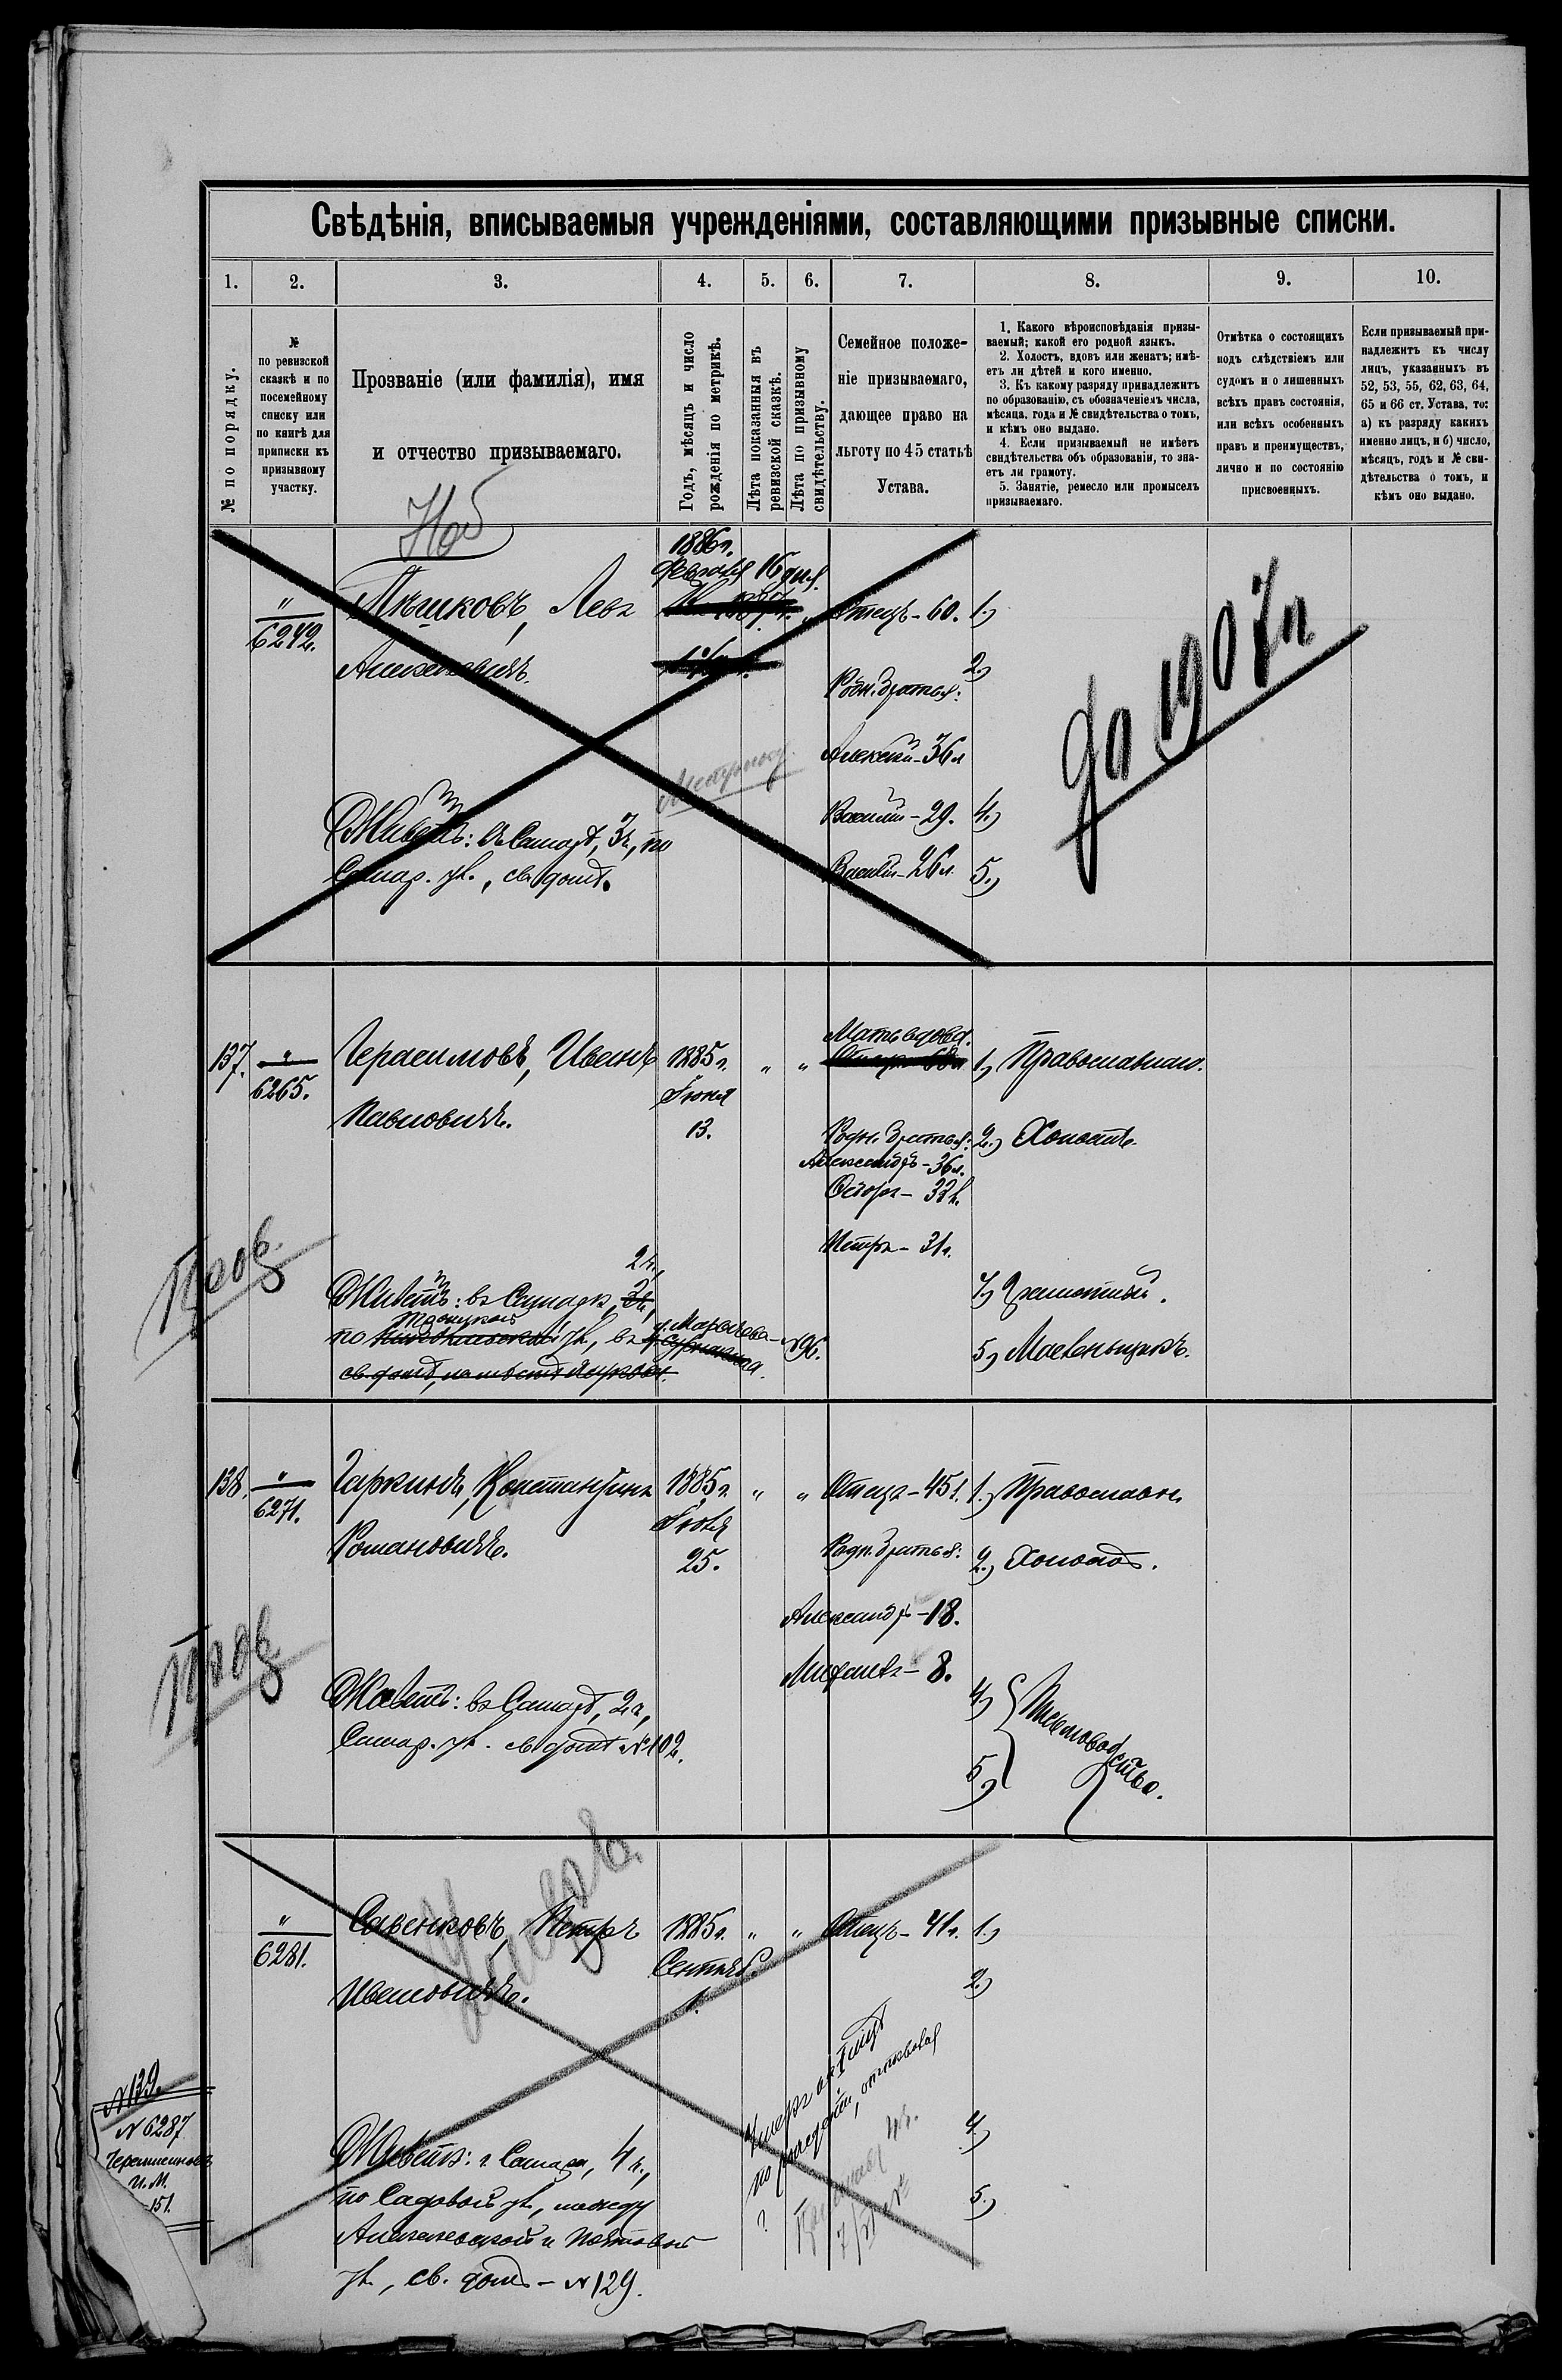 Свѣдѣнія, вписываемыя учрежденіями, составляющими призывные списки.
1. 2. 3. 4. 5. 6. 7. 8. 9. 10.
№ по порядку.
№
по ревизской
сказкѣ и по
посемейному
списку или
по книгѣ для
приписки къ
призывному
участку.
Прозваніе (или фамилія), имя
и отчество призываемаго.
Годъ, мѣсяцъ и число
рожденія по метрикѣ.
Лѣта показанныя въ
ревизской сказкѣ.
Лѣта по призывному
свидѣтельству.
Семейное положе-
ніе призываемаго,
дающее право на
льготу по 45 статьѣ
Устава.
1. Какого вѣроисповѣданія призы-
ваемый; какой его родной языкъ.
2. Холостъ, вдовъ или женатъ; имѣ-
етъ ли дѣтей и кого именно.
3. Къ какому разряду принадлежитъ
по образованію, съ обозначеніемъ числа,
мѣсяца, года и № свидѣтельства о томъ,
и кѣмъ оно выдано.
4. Если призываемый не имѣетъ
свидѣтельства объ образованіи, то зна-
етъ ли грамоту.
5. Занятіе, ремесло или промыселъ
призываемаго.
Отмѣтка о состоящихъ
подъ слѣдствіемъ или
судомъ и о лишенныхъ
всѣхъ правъ состоянія,
или всѣхъ особенныхъ
правъ и преимуществъ,
лично и по состоянію
присвоенныхъ.
Если призываемый при-
надлежитъ къ числу
лицъ, указанныхъ въ
52, 53, 55, 62, 63, 64,
65 и 66 ст. Устава, то:
а) къ разряду какихъ
именно лицъ, и б) число,
мѣсяцъ, годъ и № сви-
дѣтельства о томъ, и
кѣмъ оно выдано.
1886г.
Февраля 16 дня.
" 6242. Пѣшковъ, Левъ " Отецъ - 60. 1.)
Алексѣевичъ. 2.)
Родн. братья:
Алексѣй - 36 л
Василій - 29. 4.)
Василій - 26 л. 5.)
до 1907г
Живетъ: въ Самарѣ, 3ч, по
Самар. ул., св. домѣ.
137. " 6265. Герасимовъ, Иванъ 1885г. " " Мать вдова. 1.) Православнаго.
Павловичъ. Іюня
13. Родн. братья: 2.) Холостъ.
Александръ - 36 л.
Ѳедоръ - 32 л.
Петръ - 31 л.
2ч,
Живетъ: въ Самарѣ 4.) Грамотный.
по Троицкой ул., въ д. Марычева - №96. 5.) Маслянщикъ.
138. " 6271. Гаркинъ, Константинъ 1885г. " " Отецъ - 45 л. 1.) Православн.
Романовичъ. Іюля
25. Родн. братья: 2.) Холостъ.
Александръ - 18.
Михаилъ - 8.
Живетъ: въ Самарѣ, 2ч, 4.) Письмоводство.
Самар. ул. св. домѣ №102. 5.)
" 6281. Савенковъ, Петръ 1885г. " " Отецъ - 41 л. 1.)
Ивановичъ. Сентяб.
1. 2.)
4.)
5.)
Живетъ: г. Самара, 4ч.,
по Садовой ул., между
Алексѣевской и Почтовой
ул., св. домъ - №129.
№139.
№6287
И. М.
151.